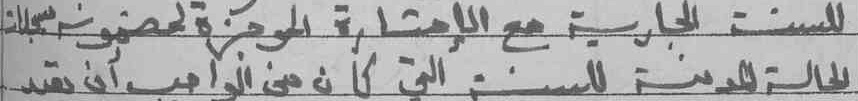 للسنة الجارية مع الإشارة الموجزة لمضمونه سجلات
الحالة المدنية للسنة التي كان من الواجب أن يقيد